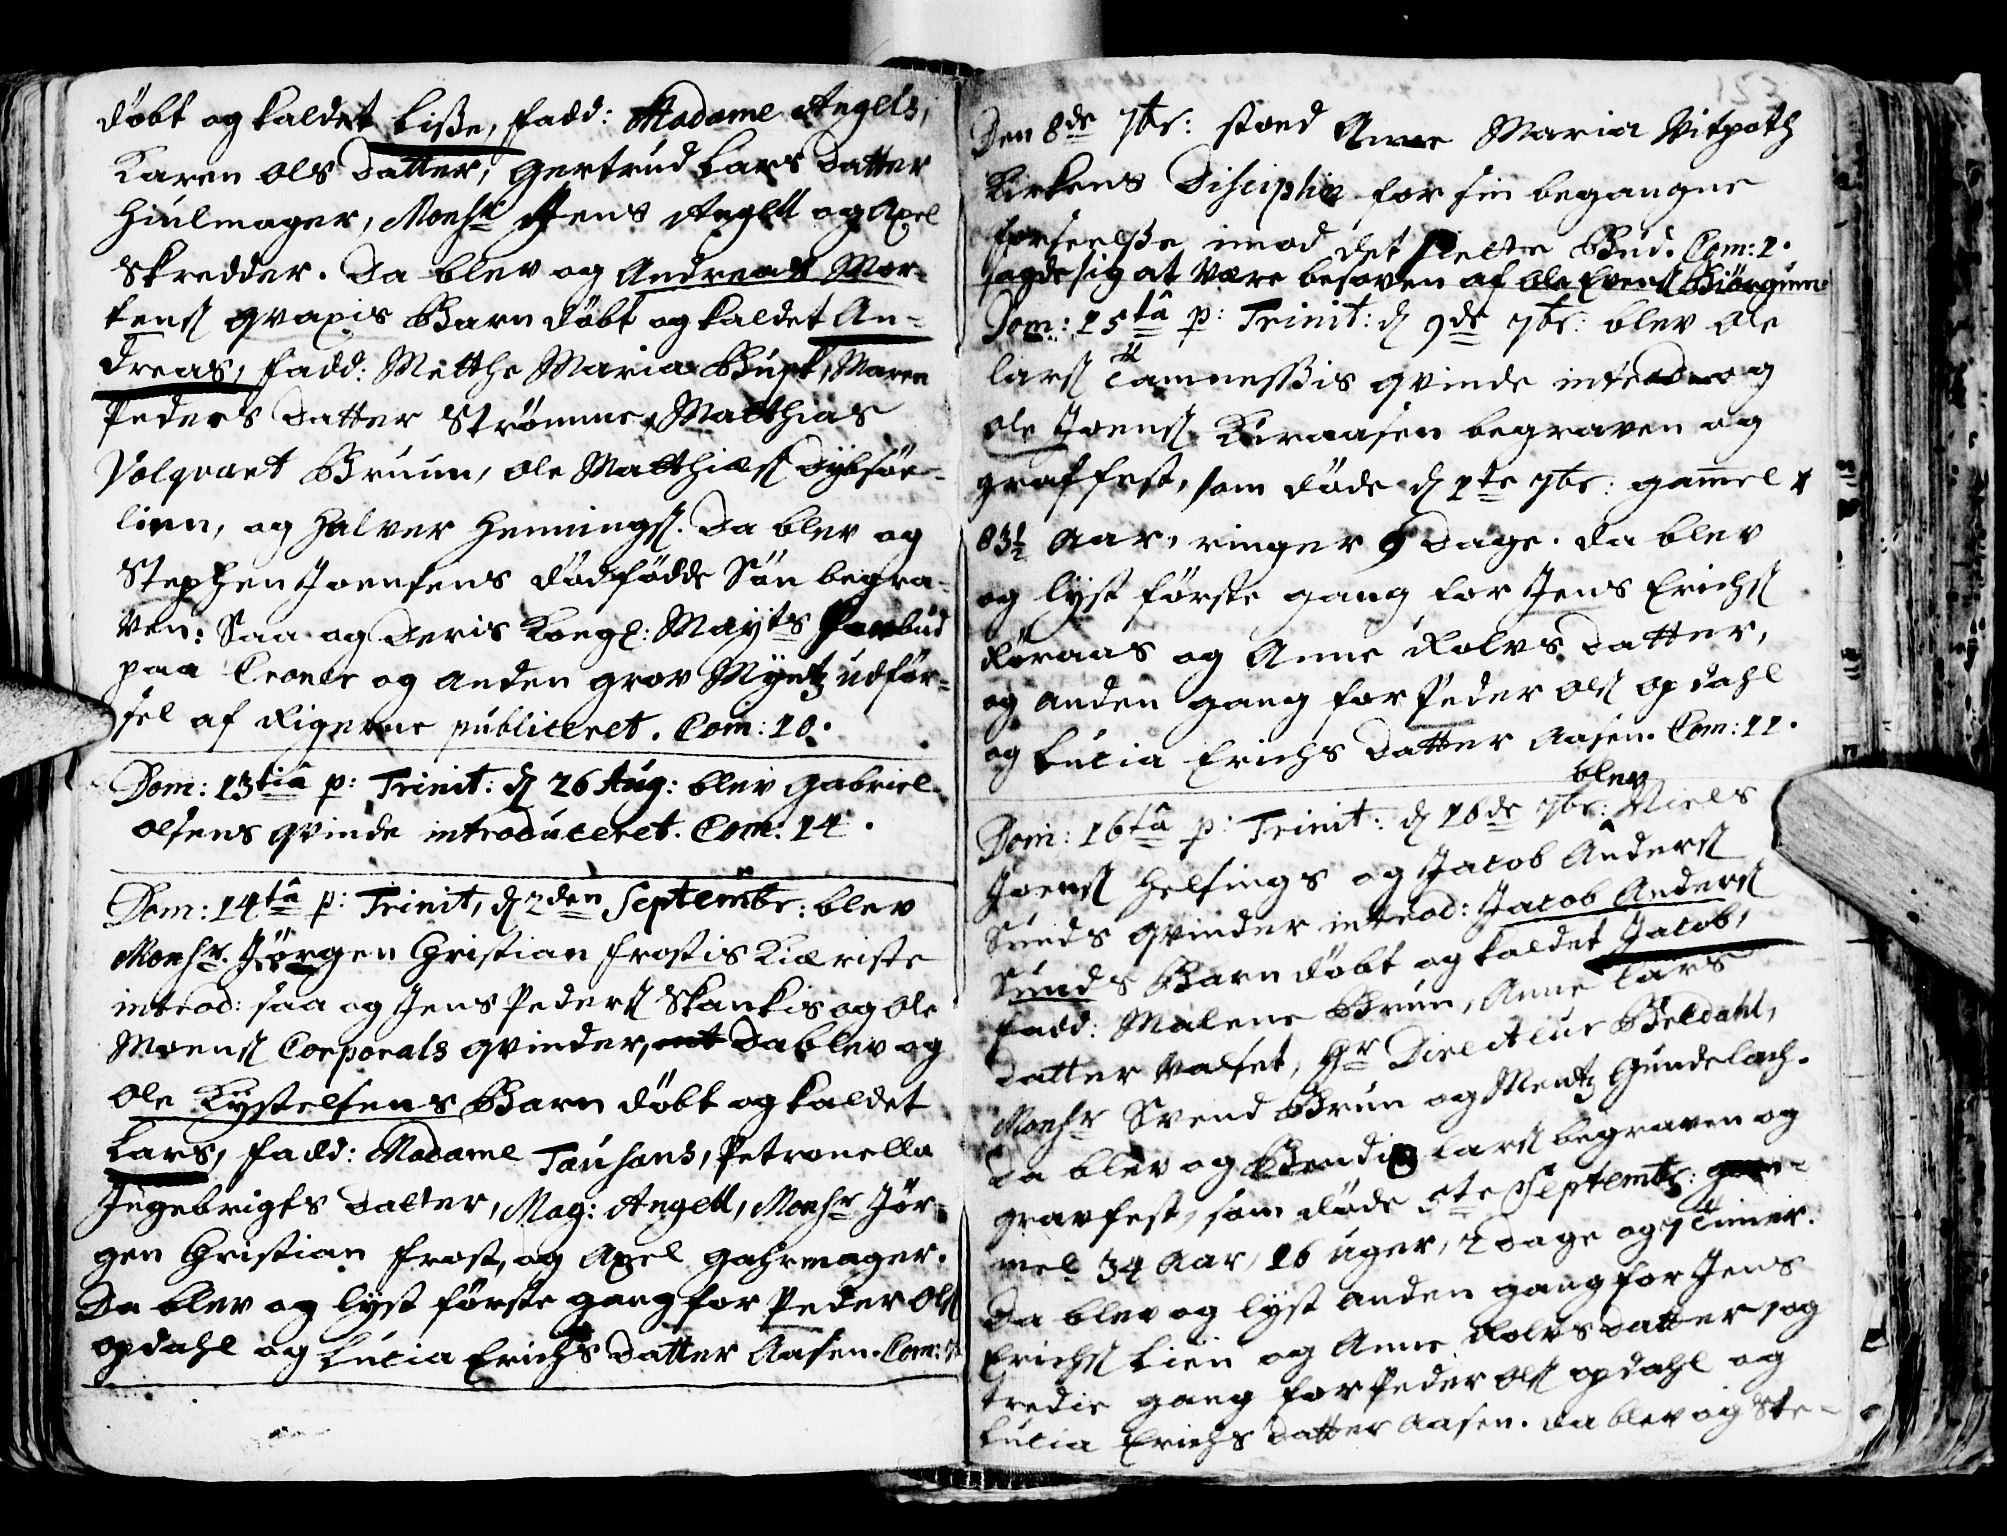 döbt og kaldet Lisse, fadd: Madame Angels,
Karen Ols Datter, Gertrud Lars Datter
Hiulmager, Monsr Jens Angell og Axel
Skredder. Da blev og Andreas Mor-
tens qvaxis Barn döbt og kaldet An-
dreas, fadd: Metthe Maria Busk, Maren
Peders Datter Strömme, Matthias
Volqvart Bruun, Ole Matthiæs Dybsöe-
lien, og Halver Hennings. Da blev og
Stephen Joensens dödfödde Sön begra-
ven: Saa og Deris Kongl: Mayts Forbud
paa Croner og anden grov Myntz udför-
sel af Rigerne publiceret. Com: 10.
Dom: 13tiâ p: Trinit: d 26 Aug: blev Gabriel
Olsens qvinde introduceret. Com: 14.
Dom: 14tâ p: Trinit, d 2den Septembr: blev
Monsr. Jörgen Christian Frostis Kiæriste
introd: saa og Jens Peders Skankis og Ole
Moens Corporals qvinder, Da blev og
Ole Kystelsens Barn döbt og kaldet
Lars, fadd: Madame Tausans, Petronella
Ingebrigts Datter, Mag: Angell, Monsr Jör-
gen Christian Frost, og Axel Gahrmager.
Da blev og lyst förste gang for Peder Ols
Opdahl og Lucia Erichs Datter Aasen. Com:
Den 8de 7br: stoed Anne Maria Vitpoth
Kirkens Disciplin for sin begangne
forseelsse imod det siette Bud. Com: 1.
sagde sig at være besoven af Ole Evens Biörgum
Dom: 15tâ p: Trinit: d 9de 7br: blev Ole
Lars Tamnessis qvinde introd og
Ole Joens Kuraasen begraven og
graffest, som döde d 1te 7br: gamel
83½ Aar, ringer 9 Dage. Da blev
og lyst förste gang for Jens Erichs
Röraas og Anne Rolvs Datter,
og anden gang for Peder Ols Opdahl
og Lucia Erichs Datter Aasen. Com: 11.
blev
Dom: 16tâ p: Trinit: d 16de 7br: Niels
Joens Helsings og Jacob Anders
Sunds qvinder introd: Jacob Anders
Sunds Barn döbt og kaldet Jacob,
fadd: Malene Brun, Anne Lars
Datter Valset, Hr Directeur Beldahl,
Monsr Svend Brun og Mentz Gundelach.
Da blev og Bendix Lars begraven og
gravfest, som döde 5te Septembr: gam-
mel 34 Aar, 16 uger, 2 Dage og 7 timer.
Da blev og lyst anden gang for Jens
Erichs Lien og Anne Rolvs Datter, og
tredie gang for Peder Ols Opdahl og
Lucia Erichs Datter Aasen. Da blev og Ste-